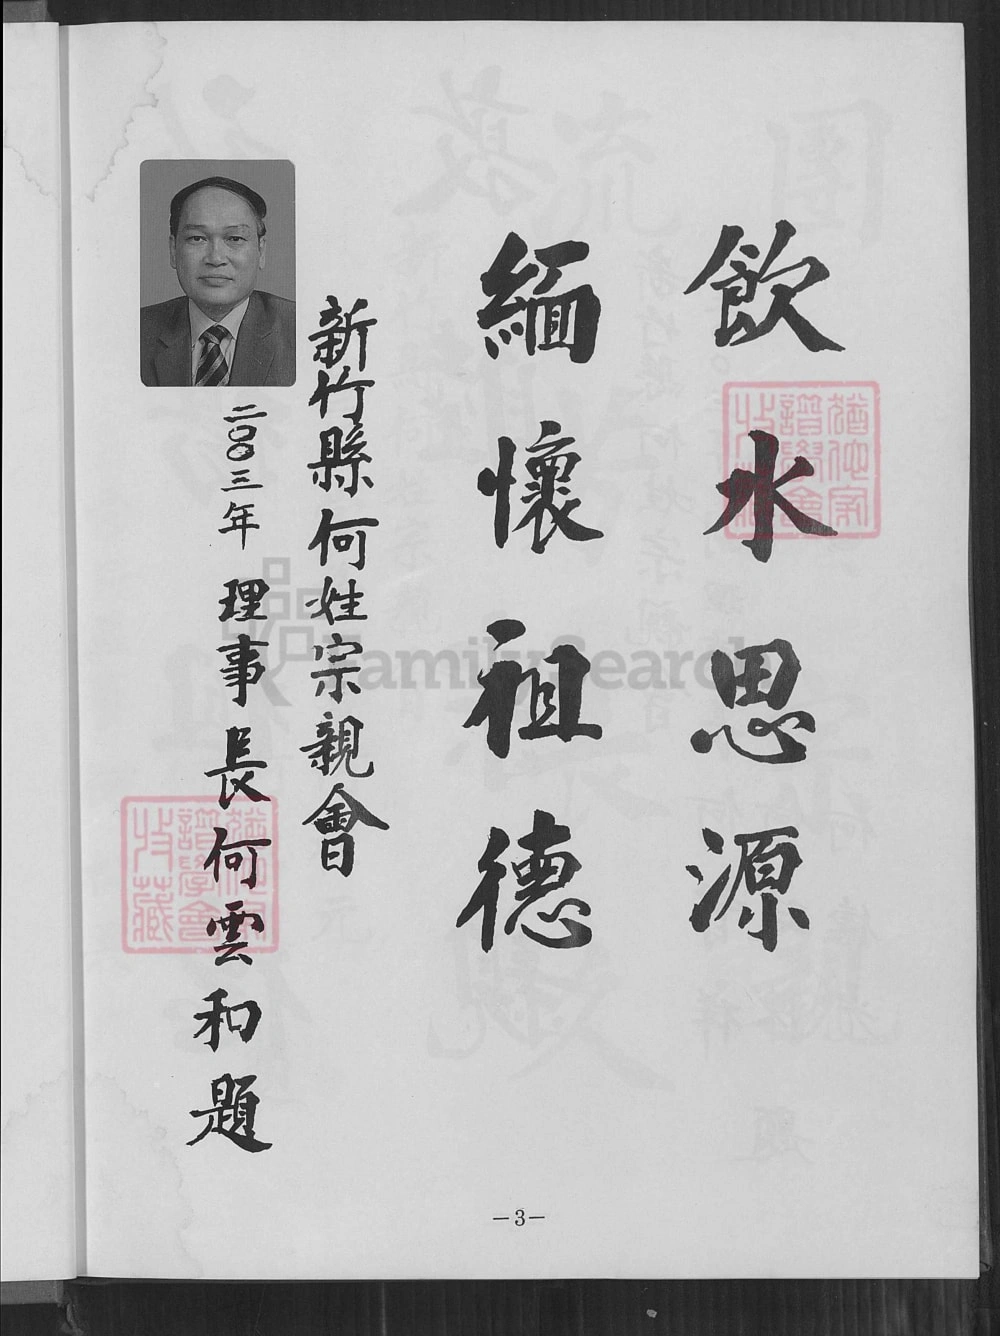 飲水思源
緬懷祖德
新竹縣何姓宗親會
二〇〇三年 理事長何雲和題
FamilySearch
－3－